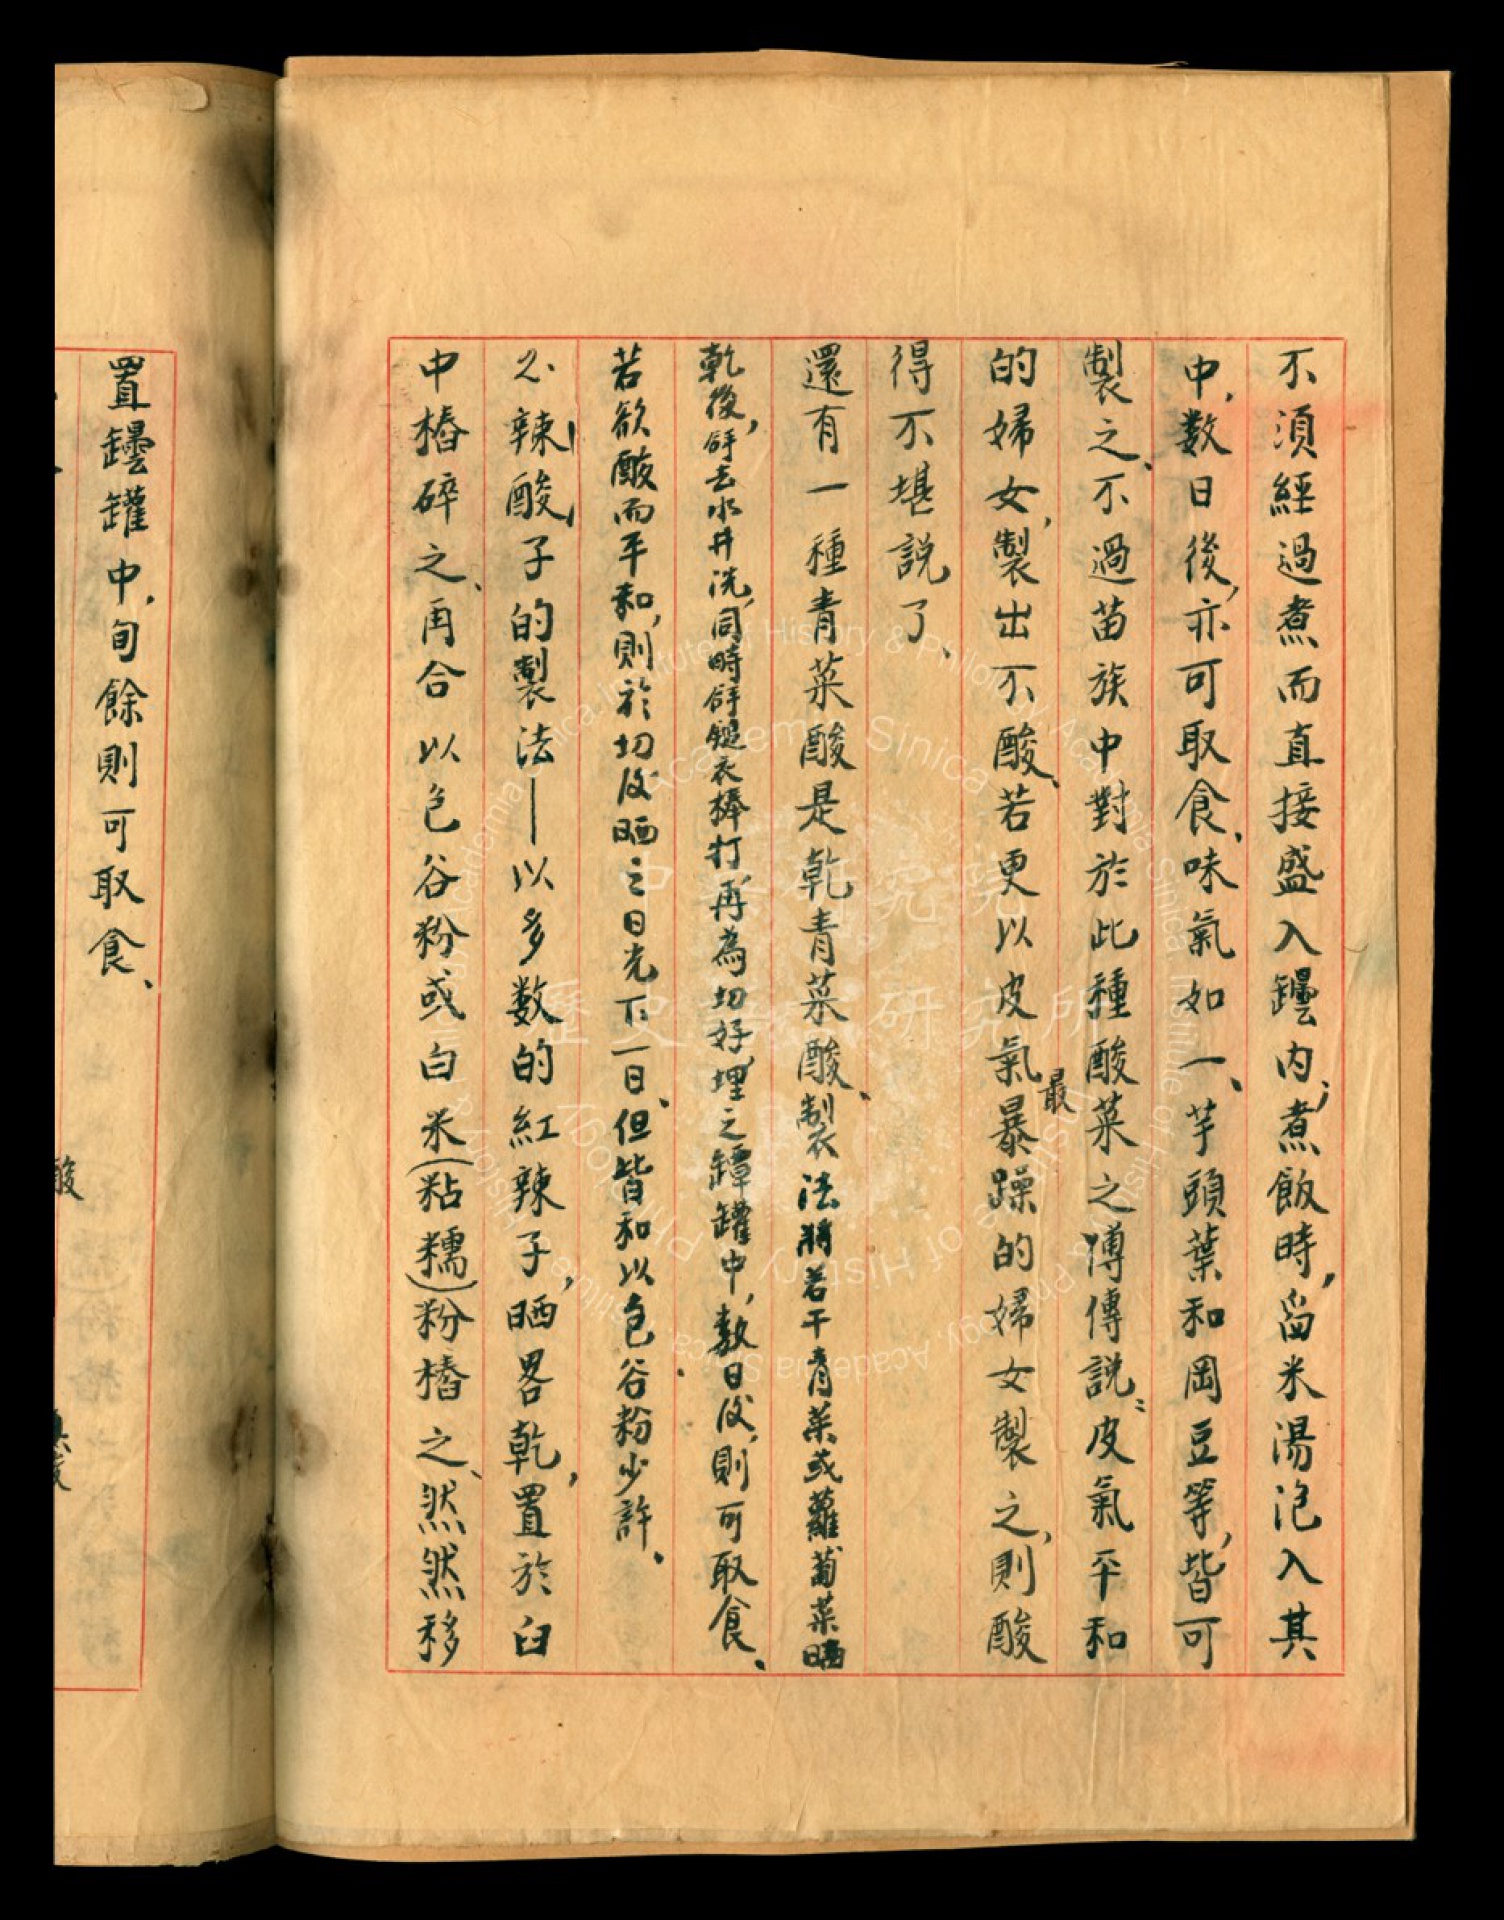 不須經過煮而直接盛入罈内，煮飯時，留米湯泡入其
中，数日後，亦可取食、味氣如一、芋頭葉和岡豆等，皆可
製之、不過苗族中對於此種酸菜之傳傳説：皮氣平和
的婦女，製出不酸、若更以皮氣最暴躁的婦女製之，則酸
得不堪説了、
還有一種青菜酸是乾青菜酸、製法將若干青菜或蘿蔔菜晒
乾後，舒去水井洗，同時舒鎚衣棒打，再為切好，埋之罈罐中，数日后，則可取食、
若欲酸而平和，則於切后晒之日光下一日、但皆和以包谷粉少許、
2、辣酸子的製法—以多数的紅辣子，晒畧乾，置於臼
中樁碎之、再合以包谷粉或白米（粘糯）粉樁之、然然移
置罈罐中，旬餘則可取食、
酸
中央研究院
歷史語言研究所
Institute of History & Philology, Academia Sinica